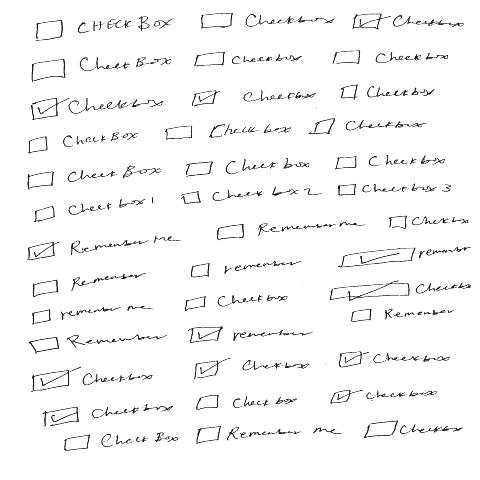 CHECK BOX Checkbox Checkbox
Check Box Checkbox Checkbox
Checkbox Checkbox Checkbox
Check Box Check box Checkbox
Check Box Check box Checkbox
Check box 1 Check box 2 Check box 3
Remember Me Remember me Checkbox
Remember remember remember
remember me Checkbox Checkbox
Remember remember Remember
Checkbox Checkbox Checkbox
Check box Check box Checkbox
Check Box Remember me Checkbox